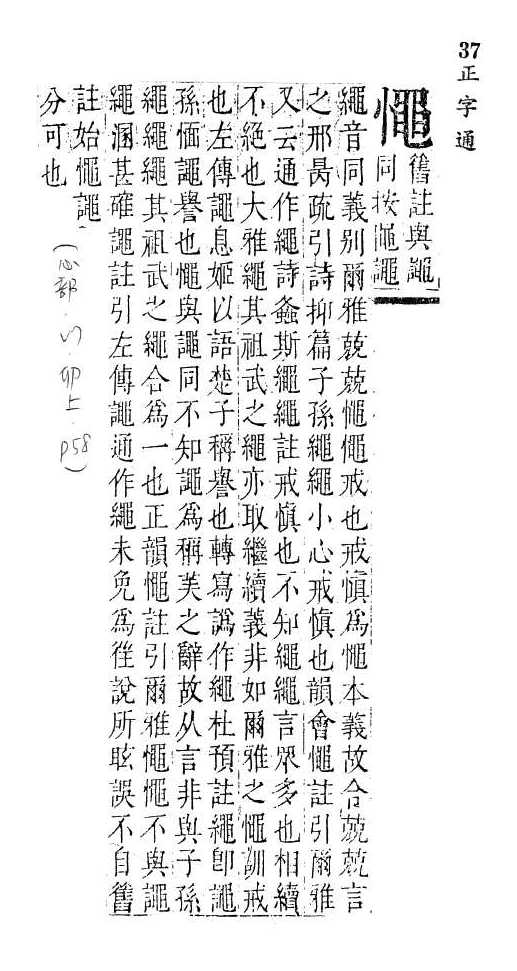 37正字通
憴
舊註與譝
同按憴譝
繩音同義别爾雅兢兢憴憴戒也戒愼爲憴本義故合兢兢言
之邢昺疏引詩抑篇子孫繩繩小心戒愼也韻會憴註引爾雅
又云通作繩詩螽斯繩繩註戒愼也不知繩繩言眾多也相續
不絶也大雅繩其祖武之繩亦取繼續義非如爾雅之憴訓戒
也左傳譝息嬀以語楚子稱譽也轉寫譌作繩杜預註繩卽譝
孫愐譝譽也憴與譝同不知譝爲稱美之辭故从言非與子孫
繩繩繩其祖武之繩合爲一也正韻憴註引爾雅憴憴不與譝
繩溷甚確譝註引左傳譝通作繩未免爲徃說所眩誤不自舊
註始憴譝
分可也
(心部 卯上 p58)